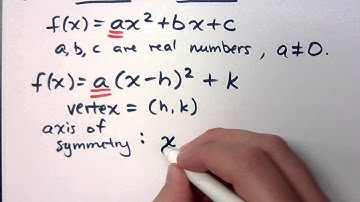 f(x) = ax² + bx + c
a, b, c are real numbers, a ≠ 0.
f(x) = a(x-h)² + k
vertex = (h, k)
axis of
symmetry : x